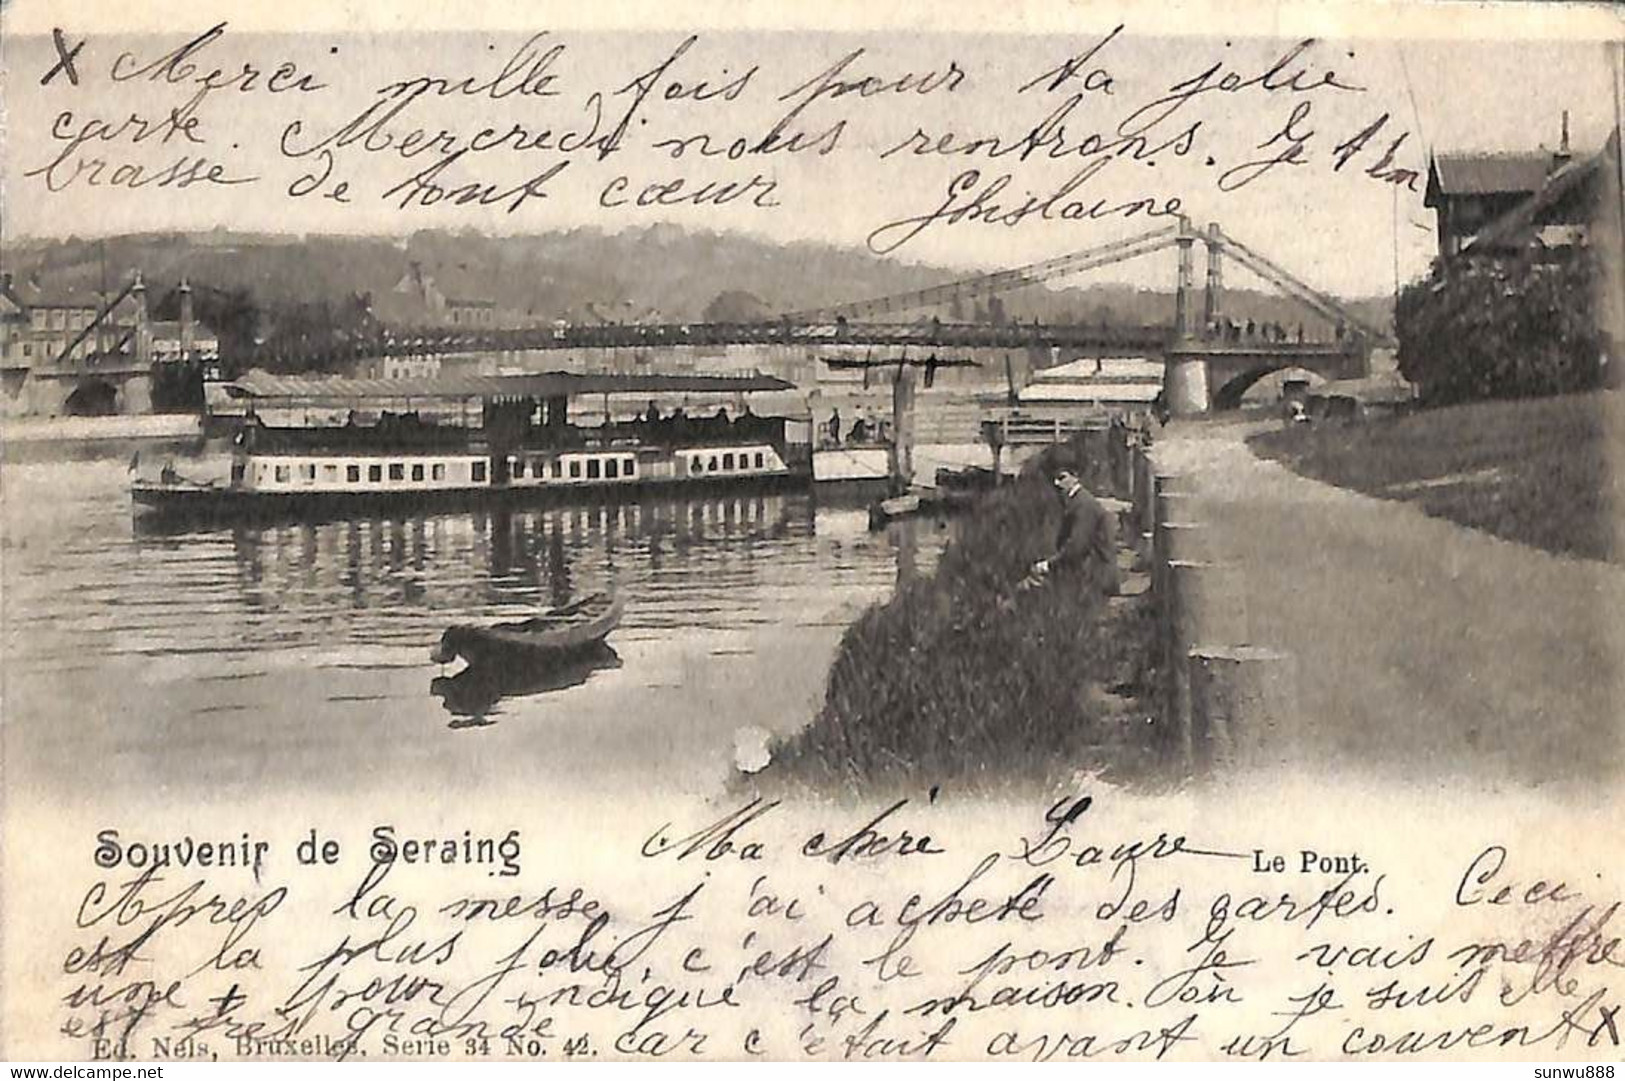 x Merci mille fois pour ta jolie
carte. Mercredi nous rentrons. Je t'em
brasse de tout cœur
Ghislaine
Souvenir de Seraing
Ma chère Laure
Le Pont.
Apres la messe j'ai acheté des cartes. Ceci
est la plus jolie, c'est le pont. Je vais mettre
une + pour indiqué la maison où je suis elle
est très grande car c'était avant un couvent x
Ed. Nels, Bruxelles, Serie 34 No. 42.
sunwu888